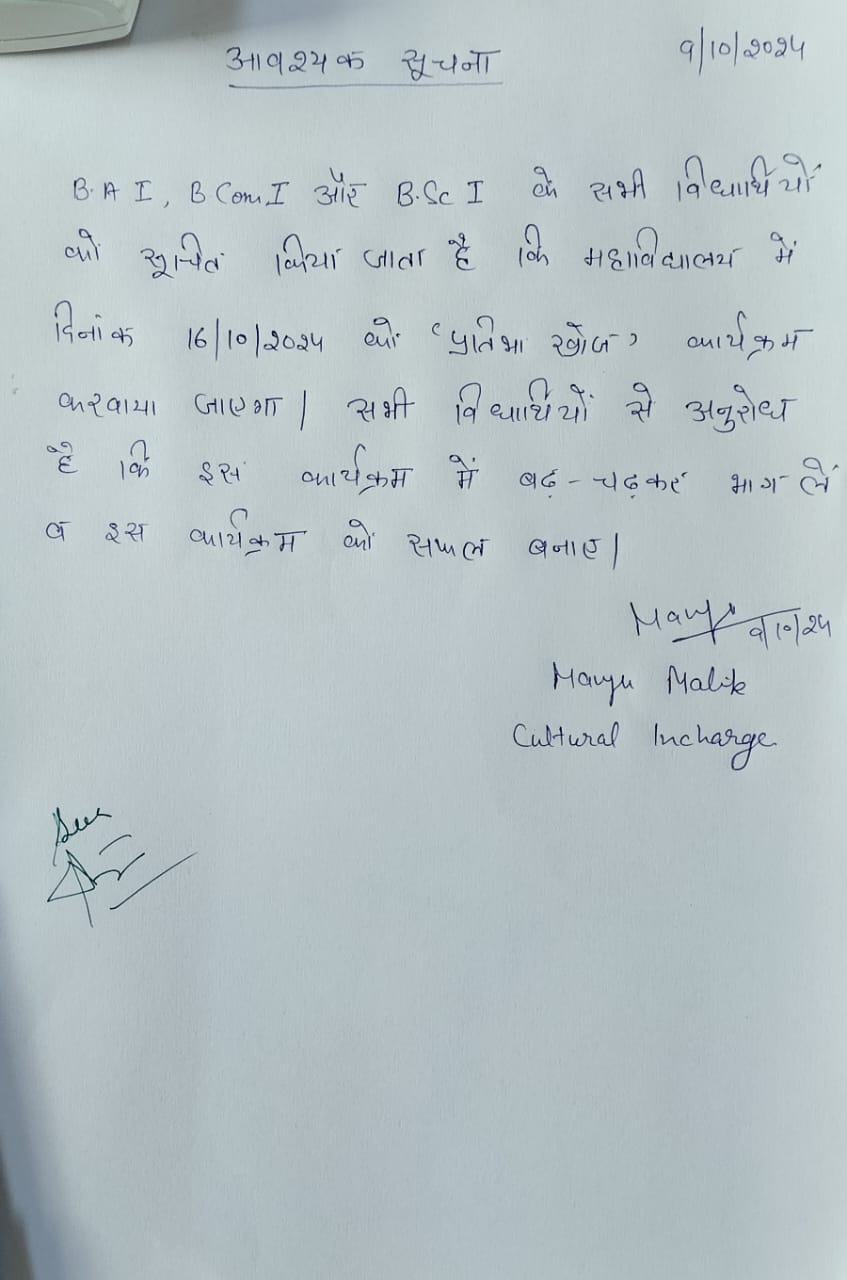 आवश्यक सूचना 9/10/2024
B.A I, B Com I और B.Sc I के सभी विद्यार्थियों
को सूचित किया जाता है कि महाविद्यालय में
दिनांक 16/10/2024 को 'प्रतिभा खोज' कार्यक्रम
करवाया जाएगा। सभी विद्यार्थियों से अनुरोध
है कि इस कार्यक्रम में बढ़-चढ़कर भाग लें
व इस कार्यक्रम को सफल बनाए।
9/10/24
Manju Malik
Cultural Incharge